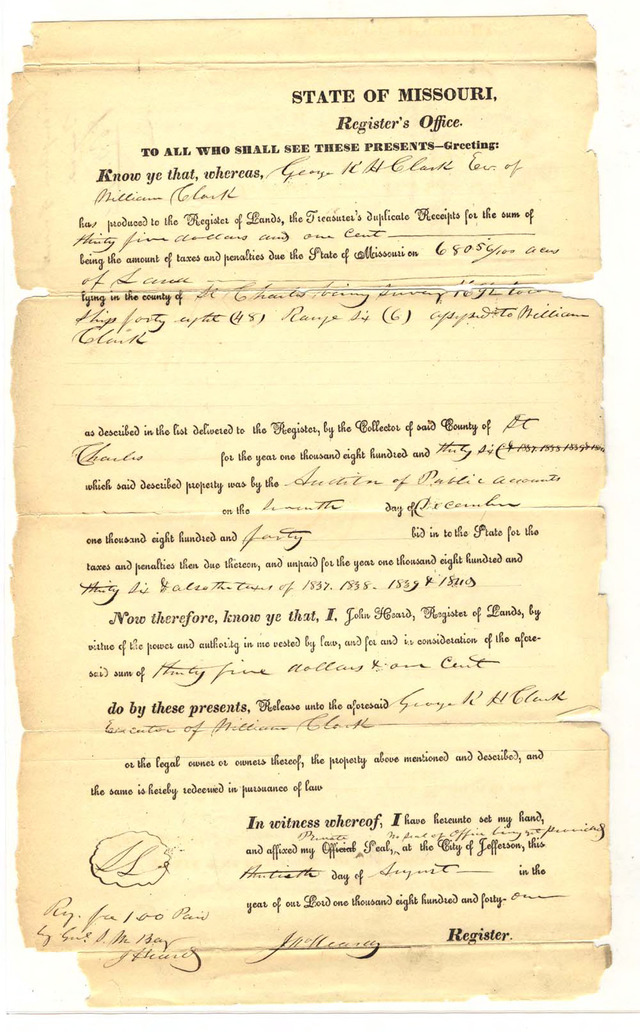 STATE OF MISSOURI,
Register's Office.
TO ALL WHO SHALL SEE THESE PRESENTS—Greeting:
Know ye that, whereas, George K H Clark Ex. of
William Clark
has produced to the Register of Lands, the Treasurer's duplicate Receipts for the sum of
thirty five dollars and one cent
being the amount of taxes and penalties due the State of Missouri on 680 56/100 acres
of Land
lying in the county of St Charles, being Survey town
ship forty eight (48) Range six (6) to William
Clark
as described in the list delivered to the Register, by the Collector of said County of St
Charles for the year one thousand eight hundred and thirty six (& 1837 1838 1839
which said described property was by the Auditor of Public accounts
on the day of December
one thousand eight hundred and forty bid in to the State for the
taxes and penalties then due thereon, and unpaid for the year one thousand eight hundred and
thirty six & also the taxes of 1837. 1838. 1839 & 1840
Now therefore, know ye that, I, John Heard, Register of Lands, by
virtue of the power and authority in me vested by law, and for and in consideration of the afore-
said sum of thirty five dollars & one cent
do by these presents, Release unto the aforesaid George K H Clark
Executor of William Clark
or the legal owner or owners thereof, the property above mentioned and described, and
the same is hereby redeemed in pursuance of law
In witness whereof, I have hereunto set my hand,
Private no seal of Office being yet provided
and affixed my Official Seal, at the City of Jefferson, this
thirtieth day of August in the
year of our Lord one thousand eight hundred and forty-one
Jno Heard Register.
Rg. fee 1.00 Paid
by Genl S. M. Bay
J Heard